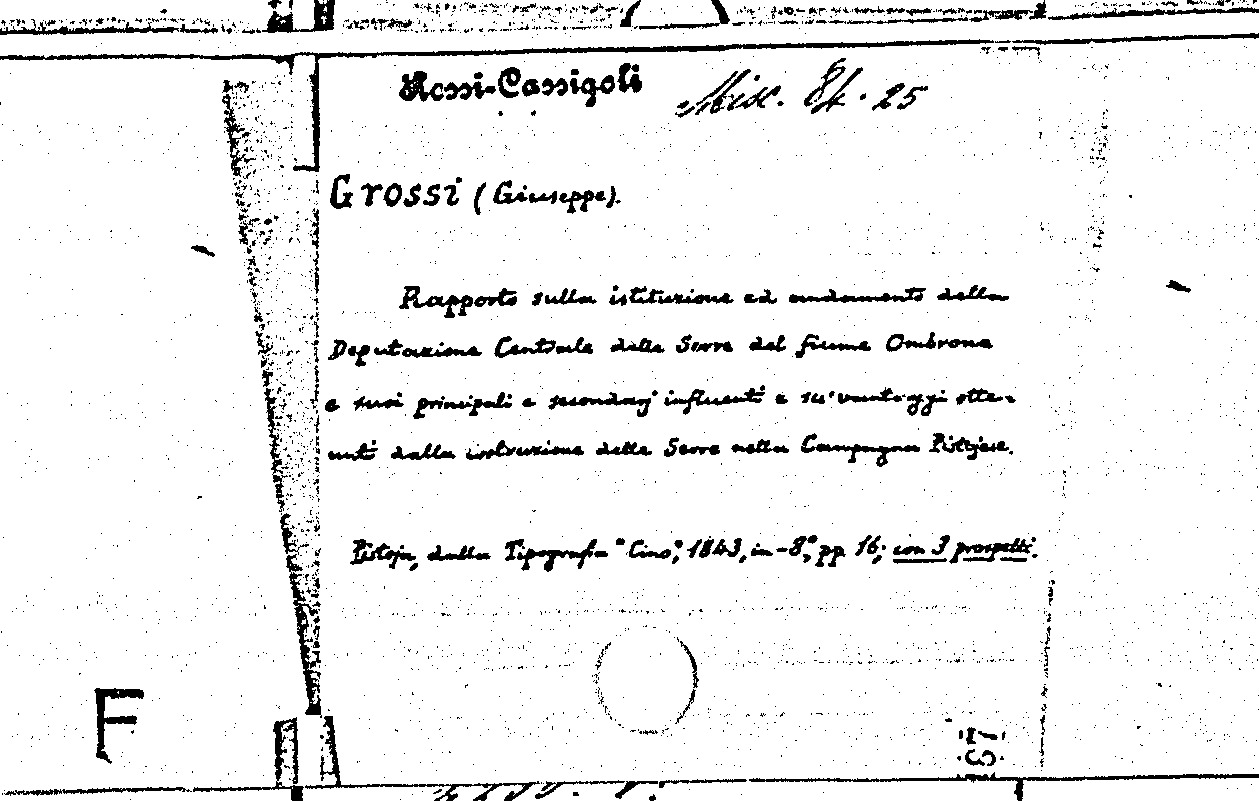 Rossi-Cassigoli
Misc. 84. 25
Grossi (Giuseppe).
Rapporto sulla istituzione ed andamento della
Deputazione Centrale delle Serre del fiume Ombrone
e suoi principali e secondarj influenti e su' vantaggi otte-
nuti dalla costruzione delle Serre nella Campagna Pistojese.
Pistoja, dalla Tipografia "Cino", 1843, in-8°, pp 16; con 3 prospetti.
F